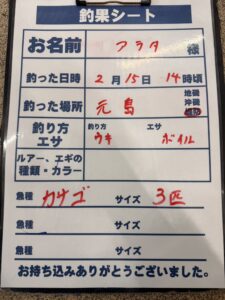 釣果シート
お名前 アラタ 様
釣った日時 2月15日 14時頃
釣った場所 元島 地磯 沖磯
釣り方 エサ 釣り方 ウキ エサ ボイル
ルアー、エギの種類・カラー
魚種 カサゴ サイズ 3匹
魚種 サイズ
魚種 サイズ
お持ち込みありがとうございました。